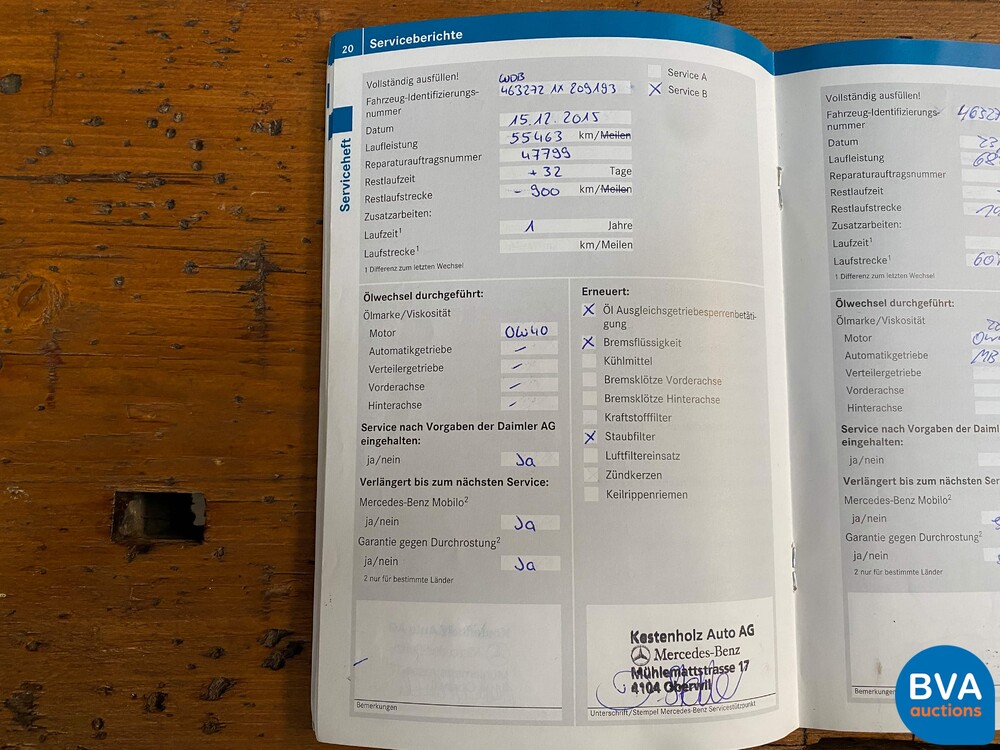 20 Serviceberichte
Serviceheft
Vollständig ausfüllen!
Fahrzeug-Identifizierungs-
nummer
WDB
463272 1X 209193
Service A
X Service B
Datum 15.12.2015
Laufleistung 55463 km/Meilen
Reparaturauftragsnummer 47799
Restlaufzeit + 32 Tage
Restlaufstrecke - 900 km/Meilen
Zusatzarbeiten:
Laufzeit¹ 1 Jahre
Laufstrecke¹ km/Meilen
1 Differenz zum letzten Wechsel
Ölwechsel durchgeführt:
Ölmarke/Viskosität
Motor 0W40
Automatikgetriebe –
Verteilergetriebe –
Vorderachse –
Hinterachse –
Service nach Vorgaben der Daimler AG
eingehalten:
ja/nein Ja
Verlängert bis zum nächsten Service:
Mercedes-Benz Mobilo²
ja/nein Ja
Garantie gegen Durchrostung²
ja/nein Ja
2 nur für bestimmte Länder
Bemerkungen
Erneuert:
X Öl Ausgleichsgetriebesperrenbetäti-
gung
X Bremsflüssigkeit
Kühlmittel
Bremsklötze Vorderachse
Bremsklötze Hinterachse
Kraftstofffilter
X Staubfilter
Luftfiltereinsatz
Zündkerzen
Keilrippenriemen
Kestenholz Auto AG
Mercedes-Benz
Mühlemattstrasse 17
4104 Oberwil
Unterschrift/Stempel Mercedes-Benz Servicestützpunkt
Vollständig ausfüllen!
Fahrzeug-Identifizierungs-
nummer
4632
Datum 23
Laufleistung
Reparaturauftragsnummer
Restlaufzeit
Restlaufstrecke
Zusatzarbeiten:
Laufzeit¹
Laufstrecke¹ 60
1 Differenz zum letzten Wechsel
Ölwechsel durchgeführt:
Ölmarke/Viskosität
Motor
Automatikgetriebe MB
Verteilergetriebe
Vorderachse
Hinterachse
Service nach Vorgaben der Daiml
eingehalten:
ja/nein
Verlängert bis zum nächsten Ser
Mercedes-Benz Mobilo²
ja/nein
Garantie gegen Durchrostung²
ja/nein
2 nur für bestimmte Länder
Bemerkungen
BVA
auctions